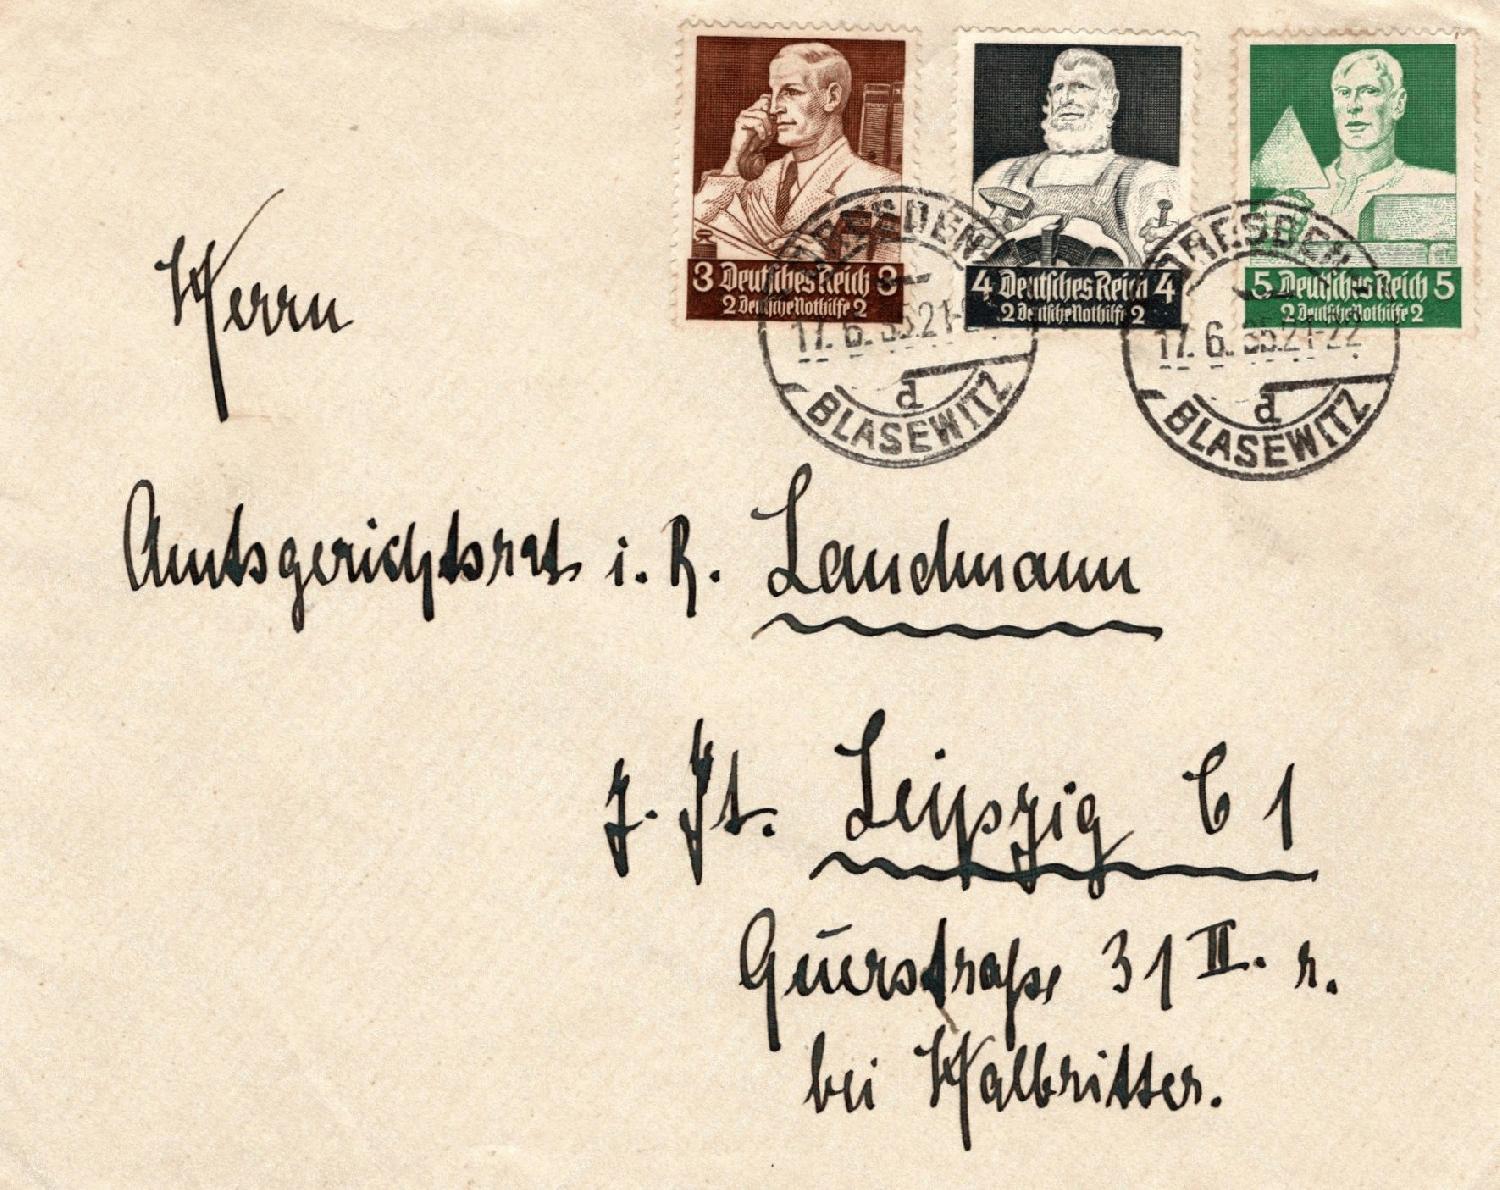 3 Deutsches Reich 3
2 Deutsche Nothilfe 2
4 Deutsches Reich 4
2 Deutsche Nothilfe 2
5 Deutsches Reich 5
2 Deutsche Nothilfe 2
DRESDEN
17.6.35.21-
d
BLASEWITZ
DRESDEN
17.6.35.21-22
d
BLASEWITZ
Herrn
Amtsgerichtsrat i. R. Landmann
z. Zt. Leipzig C 1
Querstraße 31 II. r.
bei Halbritter.